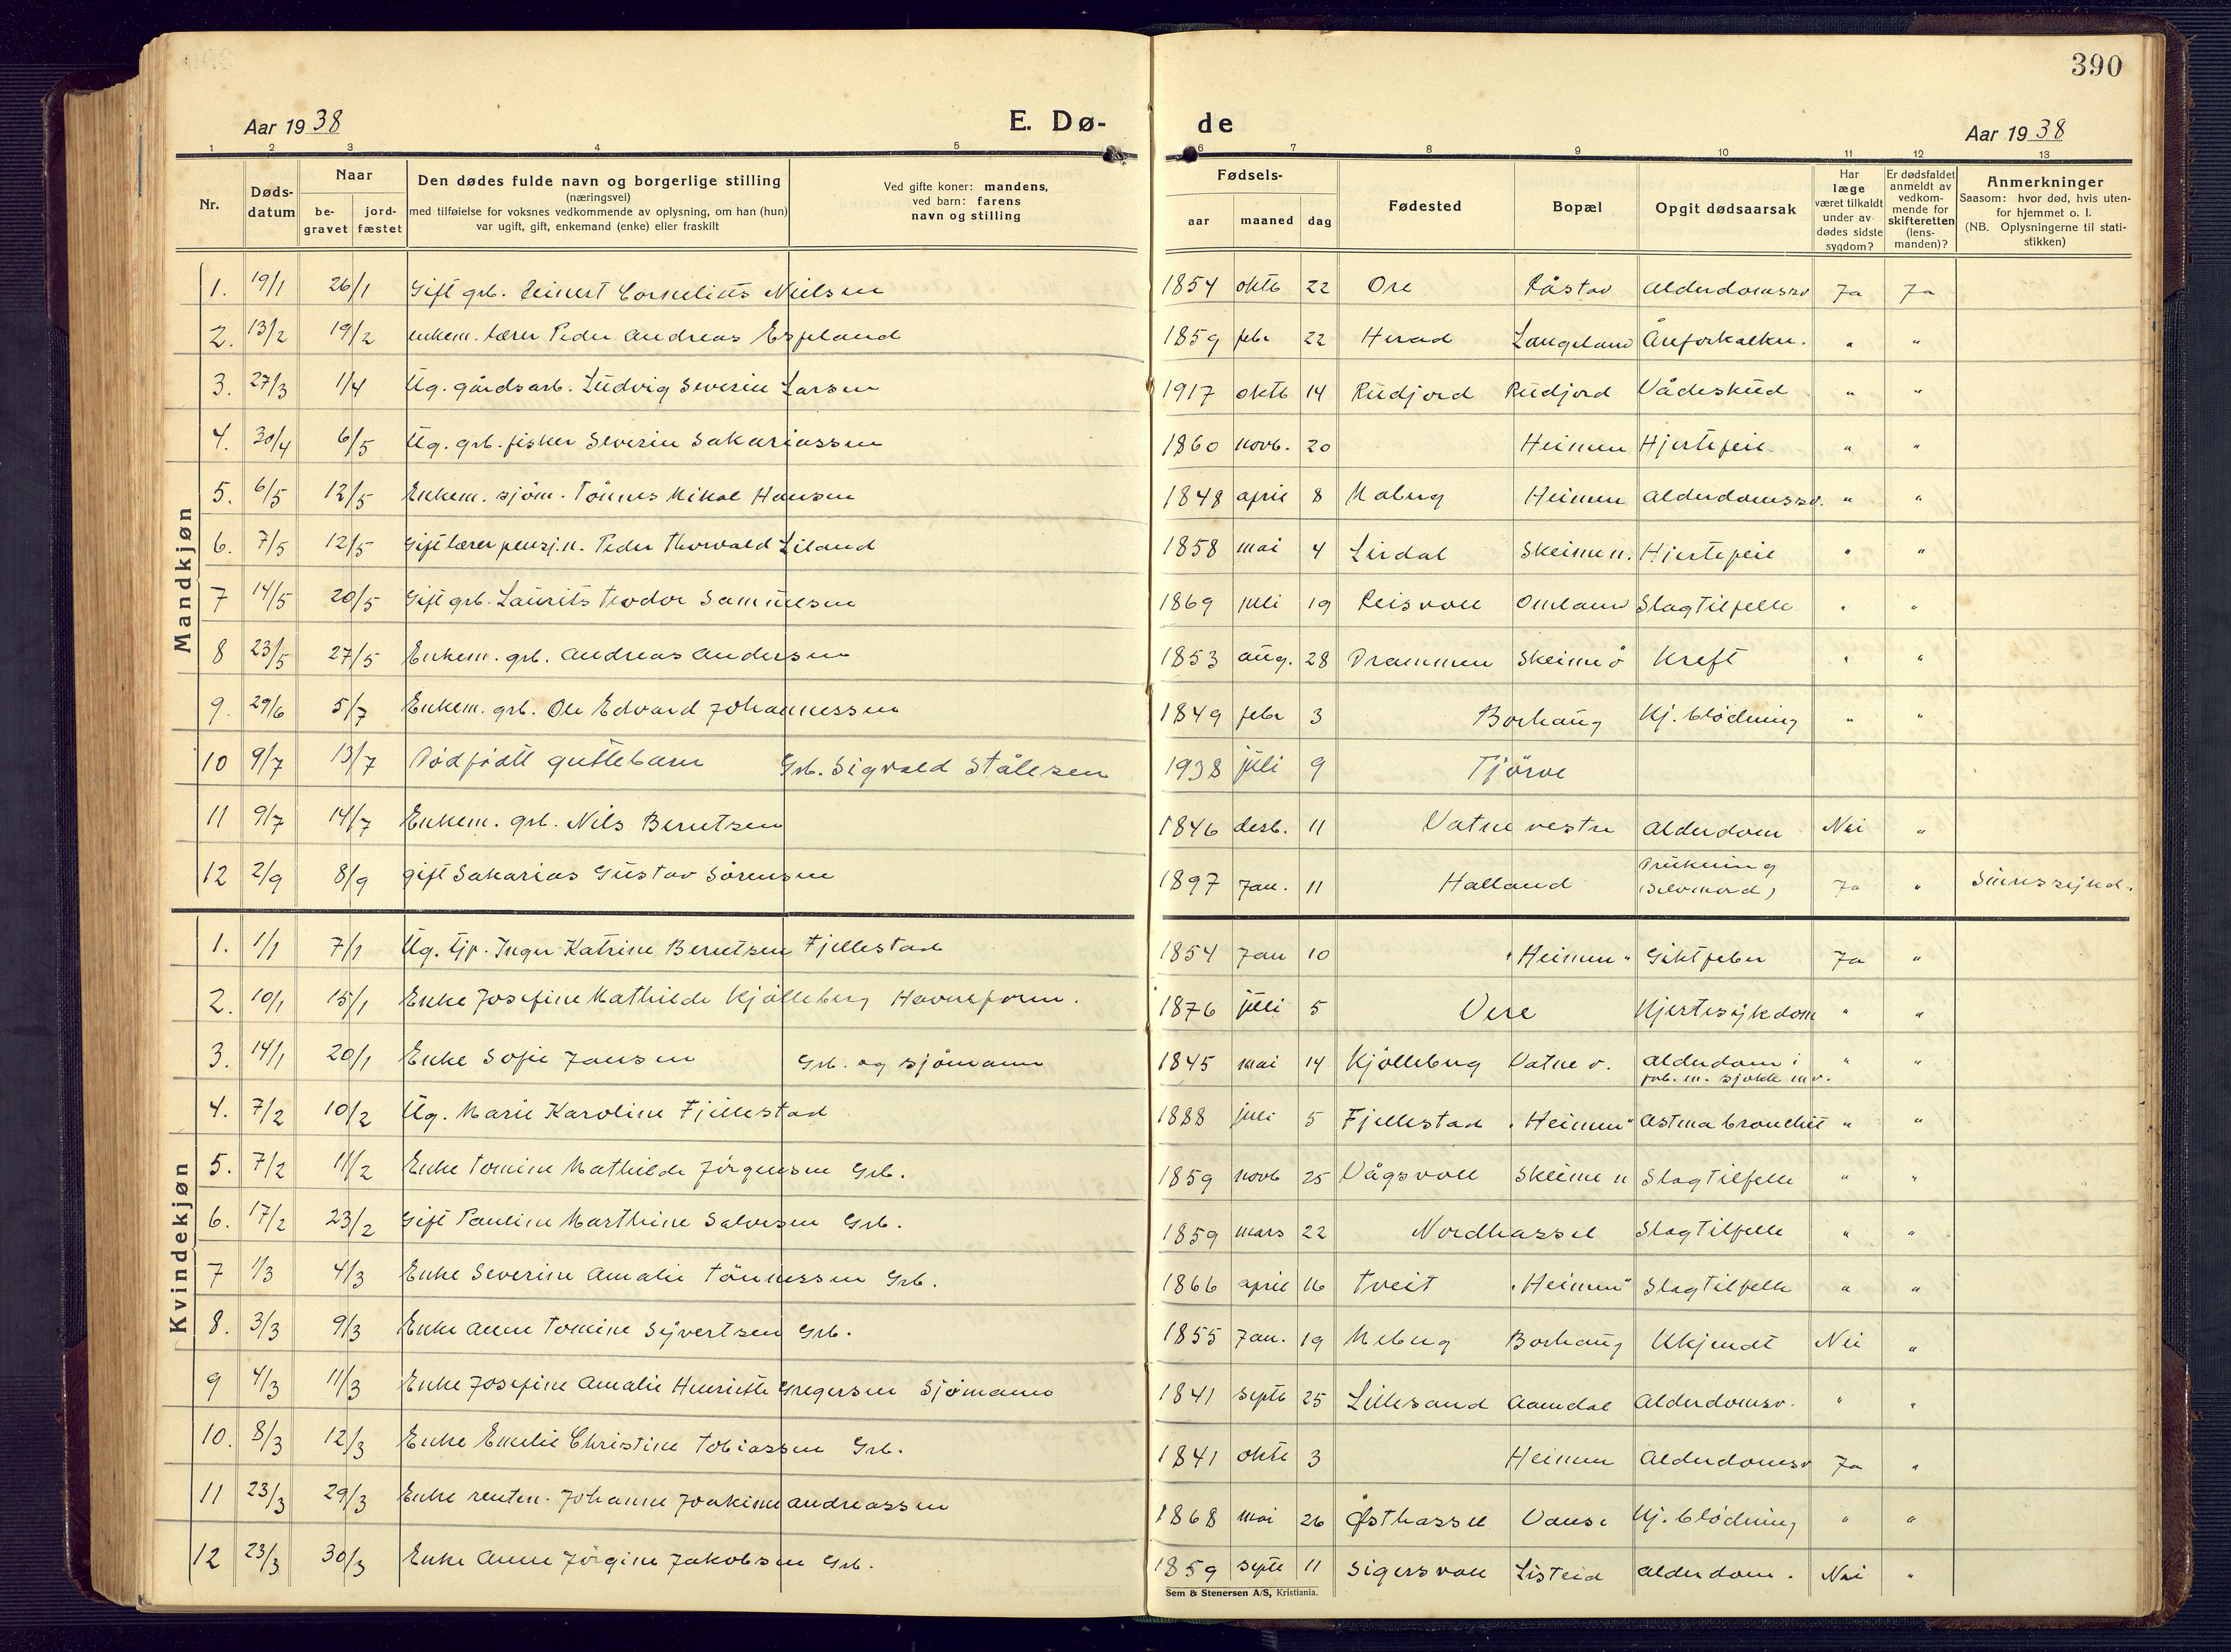 390
Aar 1938 E. Dø- de Aar 1938
1 2 3 4 5 6 7 8 9 10 11 12 13
Nr. Døds-datum Naar be-gravet jord-fæstet Den dødes fulde navn og borgerlige stilling (næringsvei) med tilføielse for voksnes vedkommende av oplysning, om han (hun) var ugift, gift, enkemand (enke) eller fraskilt Ved gifte koner: mandens, ved barn: farens navn og stilling Fødsels- aar maaned dag Fødested Bopæl Opgit dødsaarsak Har læge været tilkaldt under av dødes sidste sygdom? Er dødsfaldet anmeldt av vedkom-mende for skifteretten (lens-manden)? Anmerkninger Saasom: hvor død, hvis uten-for hjemmet o. l. (NB. Oplysningerne til stati-stikken)
Mandkjøn
1. 19/1 26/1 Gift grb. Reinert Cornelius Nielsen 1854 oktb 22 Ore Råstad Alderdomssv Ja Ja
2. 13/2 19/2 enkem. lærer Peder Andreas Espeland 1859 febr 22 Herad Langeland Åreforkalkn. " "
3. 27/3 1/4 Ug. gårdsarb. Ludvig Severin Larsen 1917 oktb 14 Rudjord Rudjord Vådeskud " "
4. 30/4 6/5 Ug. grb. fisker Severin Sakariassen 1860 novb. 20 Heimen Hjertefeil " "
5. 6/5 12/5 Enkem. sjöm. Tönnes Mikal Hansen 1848 april 8 Maberg Heimen Alderdomssv. " "
6. 7/5 12/5 Gift lærer pensj.n. Peder Thorvald Liland 1858 mai 4 Lirdal Skeime n. Hjertefeil " "
7 14/5 20/5 Gift grb. Laurits Teodor Samuelsen 1869 juli 19 Reisvoll Omland Slagtilfelle " "
8 23/5 27/5 Enkem. grb. Andreas Andersen 1853 aug. 28 Drammen Skeime ö Kreft " "
9. 29/6 5/7 Enkem. grb. Ole Edvard Johannessen 1849 febr 3 Borhaug Hj. blödning " "
10 9/7 13/7 Dødfödt guttebarn Grb. Sigvald Stålesen 1938 juli 9 Tjörve
11 9/7 14/7 Enkem. grb. Nils Berntsen 1846 desb. 11 Vatne vestre Alderdom Nei "
12 2/9 8/9 gift Sakarias Gustav Sörensen 1897 Jan. 11 Halland Drukning (Selvmord) Ja " Sinnssykd.
Kvindekjøn
1. 1/1 7/1 Ug. tjp. Inger Katrine Berntsen Fjellestad 1854 Jan 10 "Heimen" Giktfeber Ja "
2. 10/1 15/1 Enke Josefine Mathilde Kjölleberg Havneform. 1876 juli 5 Vere Hjertesykdom " "
3. 14/1 20/1 Enke Sofie Jansen Grb. og sjömann 1845 mai 14 Kjölleberg Vatne v. Alderdom i forb. m. sjokk m v. " "
4. 7/2 10/2 Ug. Marie Karoline Fjellestad 1888 juli 5 Fjellestad "Heimen" Astma bronchit " "
5. 7/2 11/2 Enke Tomine Mathilde Jörgensen Grb. 1859 novb 25 Vågsvoll Skeime n Slagtilfelle " "
6. 17/2 23/2 Gift Pauline Marthine Salvesen Grb. 1859 mars 22 Nordhassel Slagtilfelle " "
7 1/3 4/3 Enke Severine Amalie Tönnessen Grb. 1866 april 16 Tveit "Heimen" Slagtilfelle " "
8. 3/3 9/3 Enke Anne Tomine Syvertsen Grb. 1855 Jan. 19 Meberg Borhaug Ukjendt Nei "
9 4/3 11/3 Enke Josefine Amalie Henriette Gregersen Sjömann 1841 septb 25 Lillesand Aamdal Alderdomsv. " "
10. 8/3 12/3 Enke Emelie Christine Tobiassen Grb. 1841 oktb 3 Heimen Alderdomssv Ja "
11 23/3 29/3 Enke renten. Johanne Joakime Andreassen 1868 mai 26 Østhassel Vanse Hj. blödning " "
12 23/3 30/3 Enke Anne Jörgine Jakobsen Grb. 1859 septb 11 Sigersvoll Listeid Alderdom. Nei "
Sem & Stenersen A/S, Kristiania.